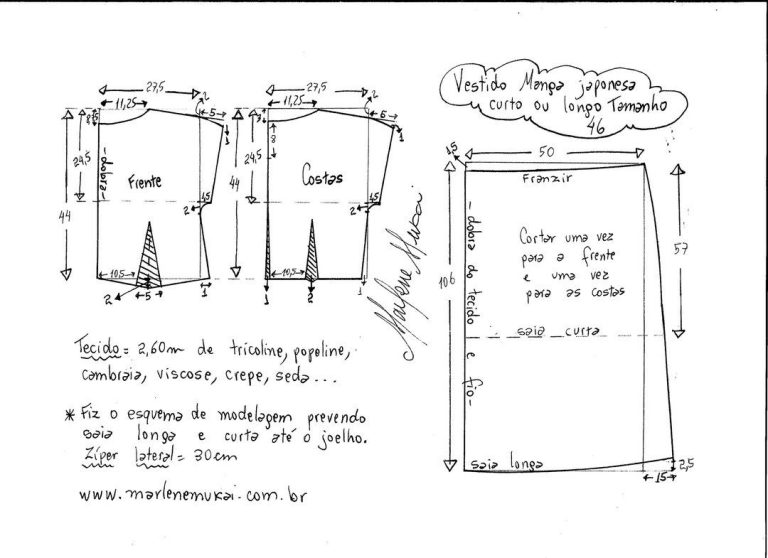 Vestido Manga japonesa
curto ou longo Tamanho
46
27,5
2
11,25
5
8
1
44
24,5
-dobra-
Frente
1,5
2
10,5
2
5
1
27,5
2
11,25
5
3
1
8
44
24,5
Costas
1,5
2
10,5
1
2
1
Marlene Mukai
15
50
Franzir
106
57
-dobra do tecido e fio-
Cortar uma vez
para a frente
e uma vez
para as costas
saia curta
saia longa
2,5
15
Tecido = 2,60m de tricoline, popeline,
cambraia, viscose, crepe, seda...
* Fiz o esquema de modelagem prevendo
saia longa e curta até o joelho.
Zíper lateral = 30cm
www.marlenemukai.com.br